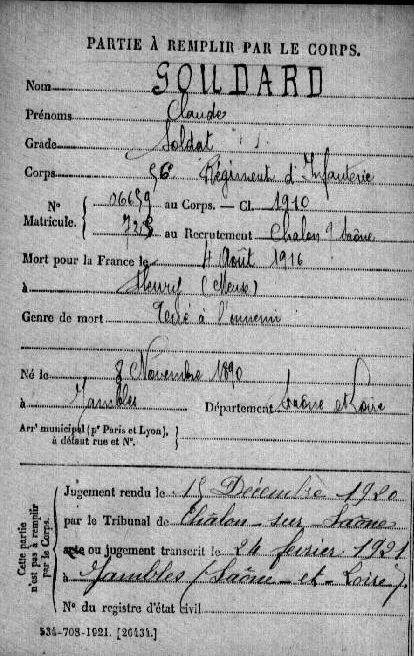 PARTIE À REMPLIR PAR LE CORPS.
Nom GOUDARD
Prénoms Claude
Grade Soldat
Corps 56e Régiment d'Infanterie
N° Matricule. { 06659 au Corps. — Cl. 1910
725 au Recrutement Chalon s/ Saône
Mort pour la France le 4 Août 1916
à Fleury (Meuse)
Genre de mort Tué à l'ennemi
Né le 8 Novembre 1890
à Jambles Département Saône et Loire
Arrt municipal (pr Paris et Lyon), à défaut rue et N°. }
Cette partie n'est pas à remplir par le Corps.
Jugement rendu le 15 Décembre 1920
par le Tribunal de Châlon-sur-Saône
acte ou jugement transcrit le 24 fevrier 1921
à Jambles (Saône-et-Loire).
N° du registre d'état civil
534-708-1921. [26434.]